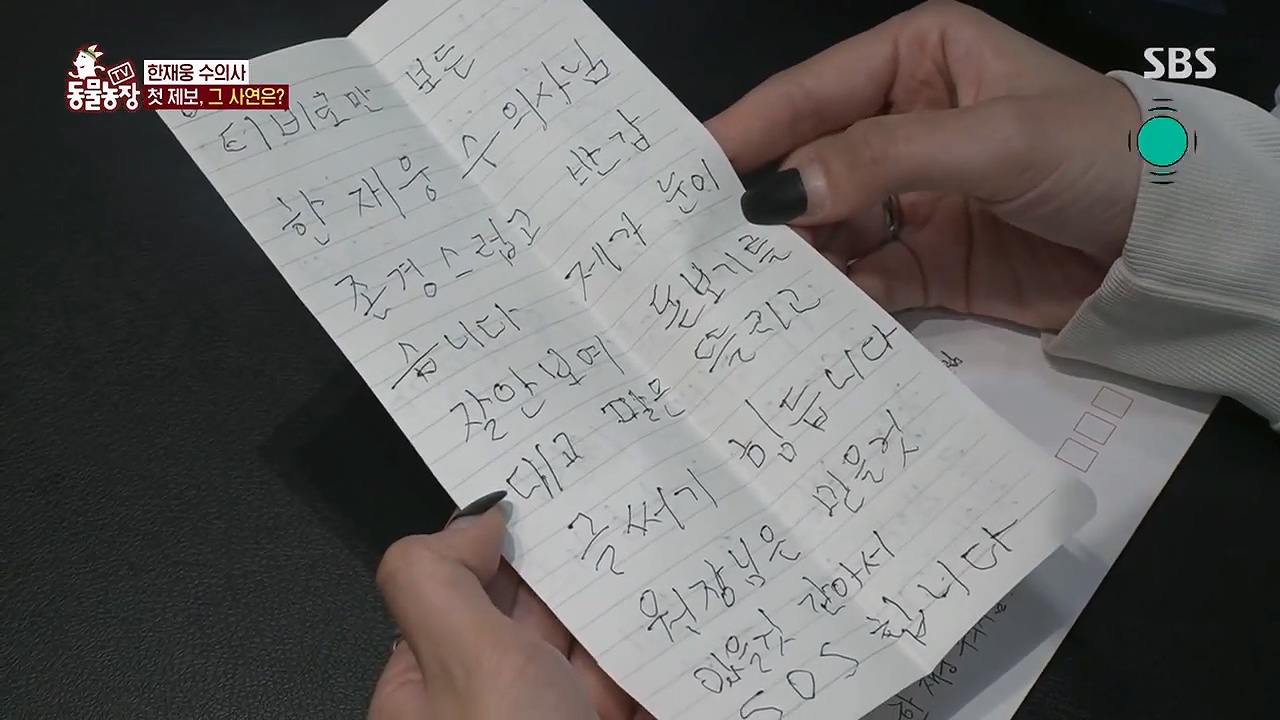 TV 동물농장
한재웅 수의사
첫 제보, 그 사연은?
SBS
티비로만 보든
한재웅 수의사님
존경스럽고 반갑
습니다 제가 눈이
잘안보여 돋보기를
대고 팔은 떨리고
글써기 힘듭니다
원장님은 믿을것
있을것 같아서
SOS 합니다